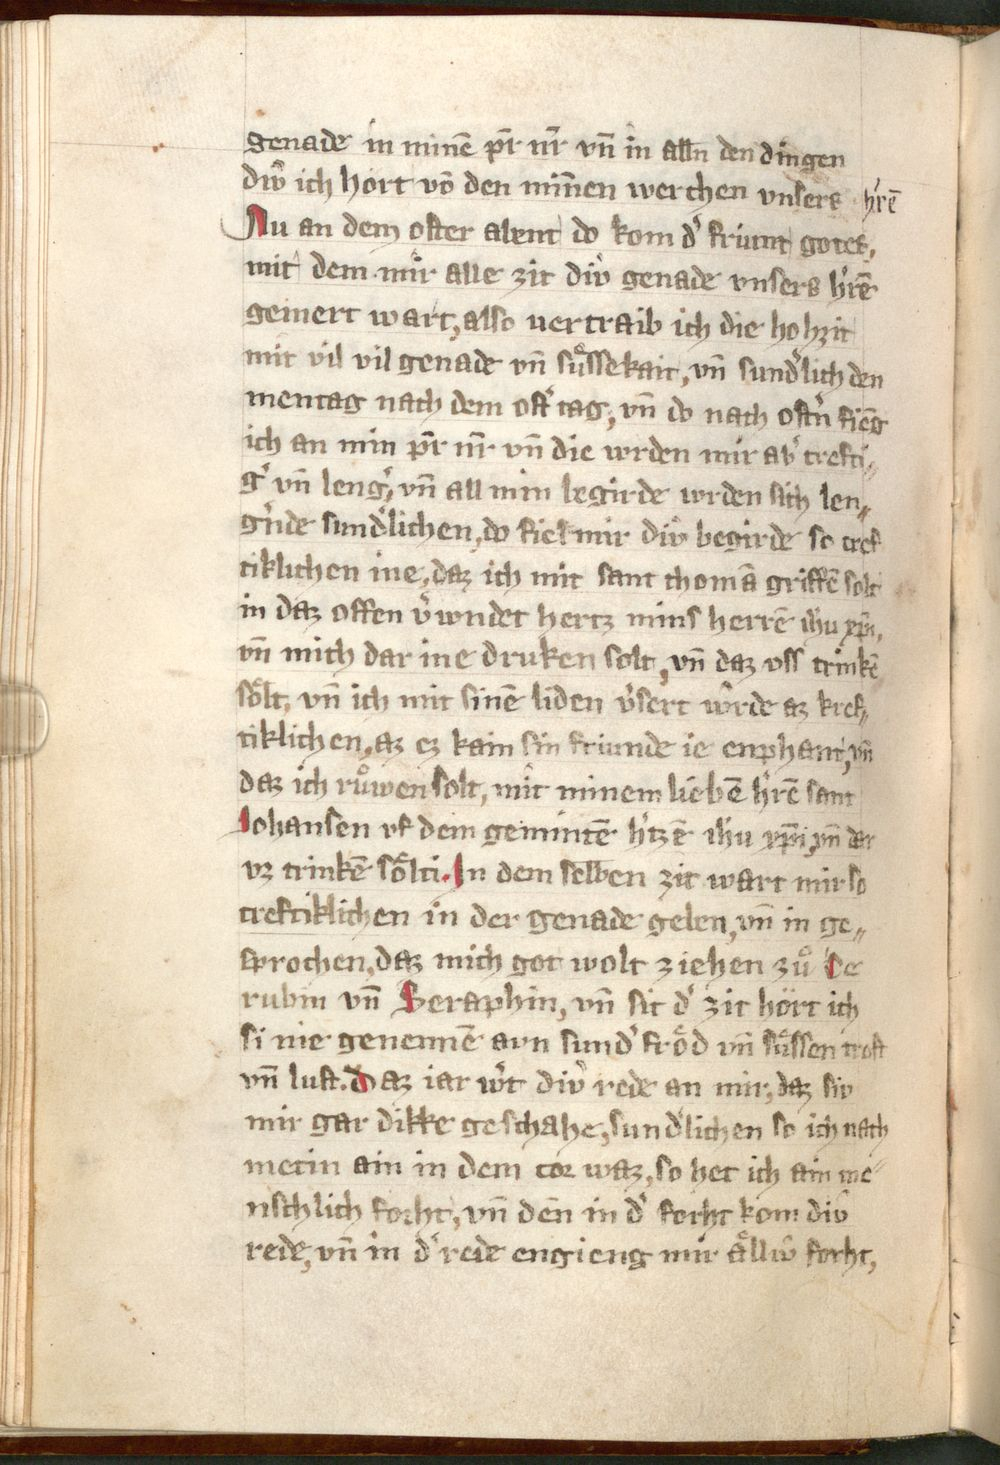 genade in minē pr̄ nr̄ vn̄ in alln den dingen
diw̍ ich hort vō den min̄en werchen vnsers h̍rē
Nu an dem oster abent do kom d̍ friunt gotes,
mit dem mir alle zit diw̍ genade vnsers h̍rē
gemert wart, also uertraib ich die hohzit
mit vil vil genade vn̄ su̍ssekait, vn̄ sund̍lich den
mentag nach dem ost̍tag, vn̄ do nach ostn̍ fieng
ich an min pr̄ nr̄ vn̄ die wrden mir ab̍ crefti„
g̍ vn̄ leng̍, vn̄ all min begirde wrden sich len„
gn̍de sund̍lichen, do fiel mir diw̍ begirde so cref
tiklichen ine, daz ich mit sant thomā griffē solt
in daz offen v̍wndet hertz mins herrē ih̄u xp̄i,
vn̄ mich dar ine druken solt, vn̄ daz vss trinkē
sölt, vn̄ ich mit sinē liden v̍sert wrde az kref„
tiklichen, az ez kain sin friunde ie enphant, vn̄
daz ich růwen solt, mit minem liebē h̍rē sant
Johansen vf dem gemintē h̍tzē ih̄u xp̄i, vn̄ dar
vz trinkē sölti. In dem selben zit wart mir so
creftiklichen in der genade geben, vn̄ in ge„
sprochen, daz mich got wolt ziehen zů Ce
rubin vn̄ Seraphin, vn̄ sit d̍ zit hört ich
si nie genennē avn sund̍ fröd vn̄ süssen trost
vn̄ lust. Daz iar w̍t diw̍ rede an mir, daz siv
mir gar dikke geschahe, sund̍lichen so ich nach
metin ain in dem cor waz, so het ich ain me„
nschlich forht, vn̄ den̄ in d̍ forht kom diw̍
rede, vn̄ in d̍ rede engieng mir ällw̍ forht,